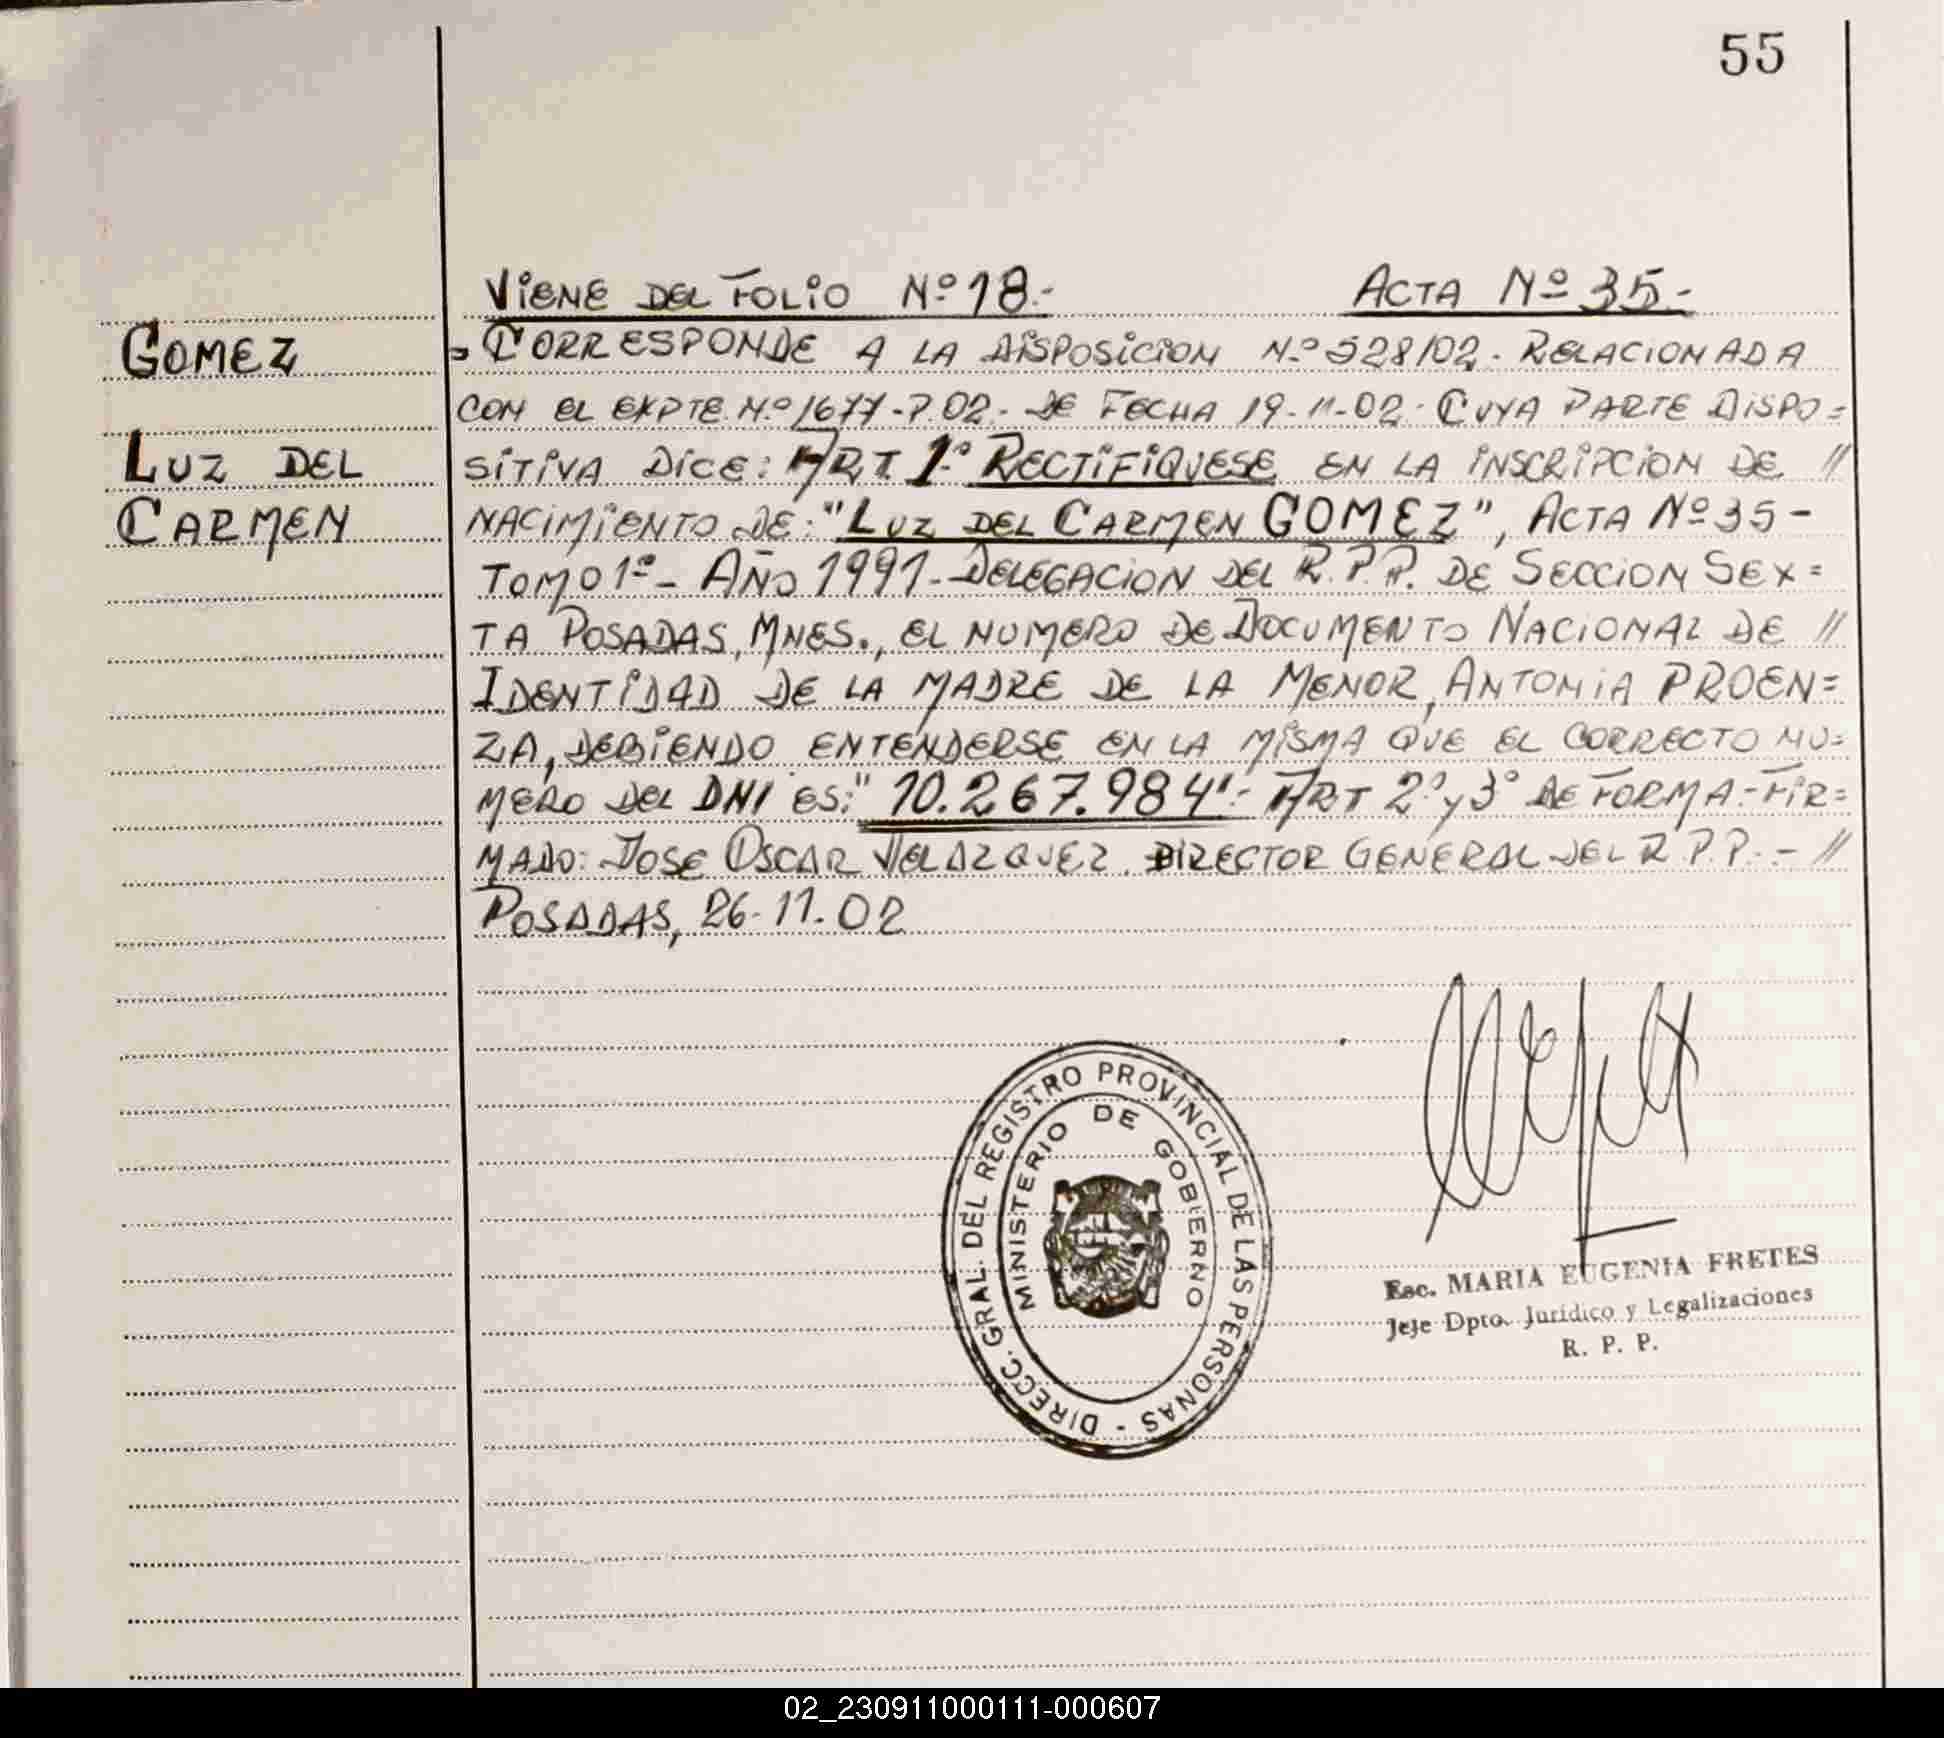 55
VIENE DEL FOLIO Nº 18.- ACTA Nº 35.-
GOMEZ
LUZ DEL
CARMEN
CORRESPONDE A LA DISPOSICION N.º 528/02. RELACIONADA
CON EL EXPTE. N.º 1677-P.02.- DE FECHA 19-11-02. CUYA PARTE DISPO=
SITIVA DICE: ART 1º RECTIFIQUESE EN LA INSCRIPCION DE //
NACIMIENTO DE: "LUZ DEL CARMEN GOMEZ", ACTA Nº 35-
TOMO 1º- AÑO 1991- DELEGACION DEL R.P.P. DE SECCION SEX=
TA POSADAS, MNES., EL NUMERO DE DOCUMENTO NACIONAL DE //
IDENTIDAD DE LA MADRE DE LA MENOR, ANTONIA PROEN=
ZA, DEBIENDO ENTENDERSE EN LA MISMA QUE EL CORRECTO NU=
MERO DEL DNI ES: "10.267.984".- ART 2º y 3º DE FORMA.- FIR=
MADO: JOSE OSCAR VELAZQUEZ. DIRECTOR GENERAL DEL R.P.P. - //
POSADAS, 26-11-02
DIRECC. GRAL. DEL REGISTRO PROVINCIAL DE LAS PERSONAS -
MINISTERIO DE GOBIERNO
Esc. MARIA EUGENIA FRETES
Jefe Dpto. Jurídico y Legalizaciones
R. P. P.
02_230911000111-000607